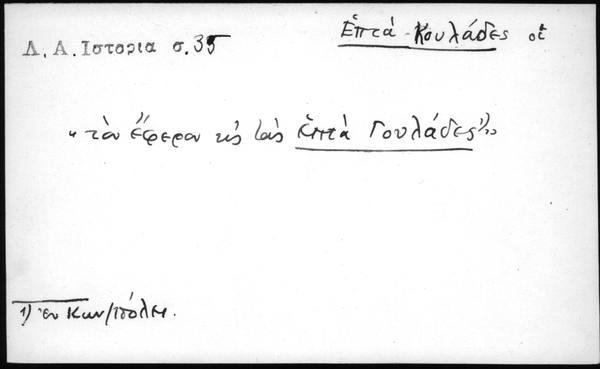 Λ. Α. Ιστορια σ. 35
Ἑπτά Κουλάδες οἱ
« τὸν ἔφερον εἰς τὰς ἑπτὰ Γουλάδες¹⁾»
1) ἐν Κων/πόλει.